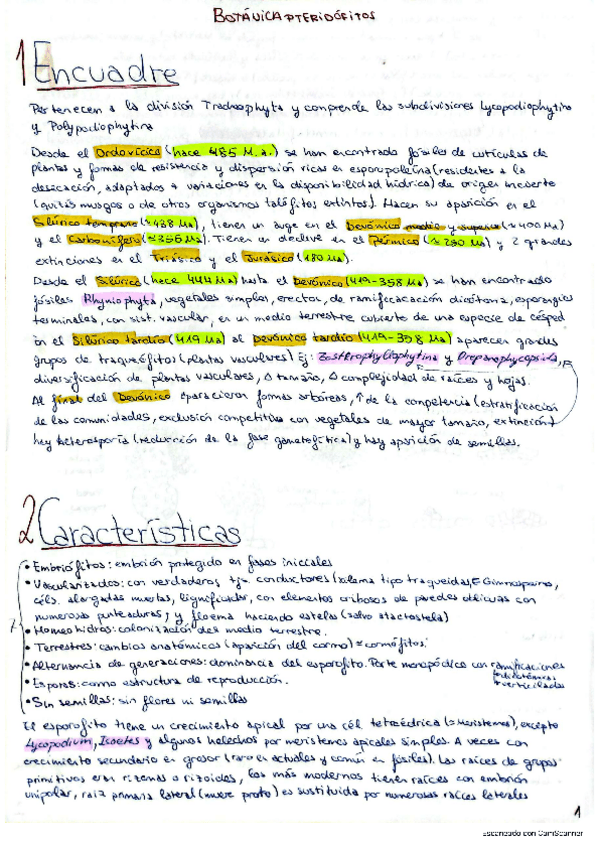 BOTÁNICA PTERIDÓFITOS
1 Encuadre
Pertenecen a la división Tracheophyta y comprende las subdivisiones Lycopodiophytina
y Polypodiophytina
Desde el Ordovícico (hace 485 M.a.) se han encontrado fósiles de cutículas de
plantas y formas de resistencia y dispersión ricas en esporopolenina (resistentes a la
desecación, adaptados a variaciones en la disponibilidad hídrica) de origen incierto
(quizás musgos o de otros organismos talófitos extintos). Hacen su aparición en el
Silúrico temprano (≈438 Ma), tienen un auge en el Devónico medio y superior (≈400 Ma)
y el Carbonífero (≈355 Ma). Tienen un declive en el Pérmico (≈290 Ma) y 2 grandes
extinciones en el Triásico y el Jurásico (180 Ma).
Desde el Silúrico (hace 444 Ma) hasta el Devónico (419-358 Ma) se han encontrado
fósiles Rhyniophyta, vegetales simples, erectos, de ramificacación dicótoma, esporangios
terminales, con sist. vascular, en un medio terrestre cubierto de una especie de césped
En el Silúrico tardío (419 Ma) al Devónico tardío (419-398 Ma) aparecen grandes
grupos de traqueófitos (plantas vasculares) Ej: Zosterophyllophytina y
diversificación de plantas vasculares, Δ tamaño, Δ complejidad de raíces y hojas.
Al final del Devónico aparecieron formas arbóreas, ↑ de la competencia (estratificación
de las comunidades, exclusión competitiva con vegetales de mayor tamaño, extinción)
hay heterosporia (reducción de la fase gametofítica) y hay aparición de semillas.
2 Características
• Embriófitos: embrión protegido en fases iniciales
• Vascularizados: con verdaderos tjs. conductores (xilema tipo traqueidas, Gimnospermas,
céls. alargadas muertas, lignificadas, con elementos cribosos de paredes oblicuas con
numerosas punteaduras, y floema haciendo estelas (salvo atactostela)
• Homeohidros: colonización del medio terrestre.
• Terrestres: cambios anatómicos (aparición del cormo) = cormófitos.
• Alternancia de generaciones: dominancia del esporofito. Porte monopódico con ramificaciones
dicótomas
verticiladas
• Esporas: como estructura de reproducción.
• Sin semillas: sin flores ni semillas
El esporofito tiene un crecimiento apical por una cél. tetraédrica (≠ Meristemos), excepto
Lycopodium, Isoetes y algunos helechos por meristemos apicales simples. A veces con
crecimiento secundario en grosor (raro en actuales y común en fósiles). Las raíces de grupos
primitivos eran rizomas o rizoides, los más modernos tienen raíces con embrión
unipolar, raíz primaria lateral (muere pronto) es sustituida por numerosas raíces laterales
1
Escaneado con CamScanner